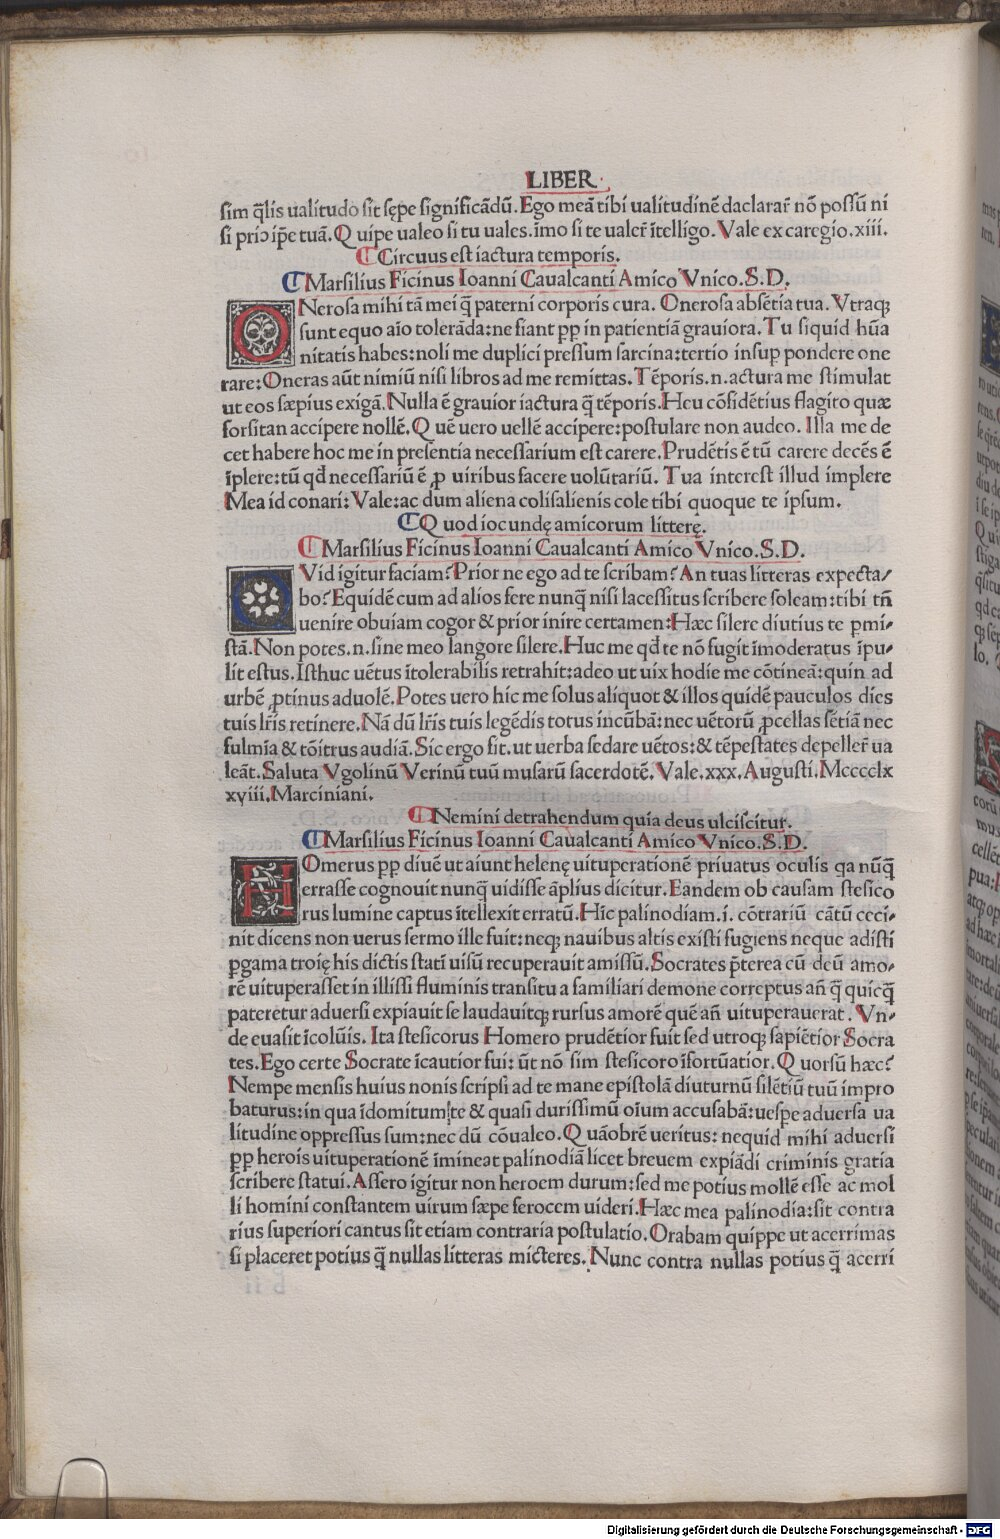 LIBER
sim q̄lis ualitudo sit sępe significādū. Ego meā tibi ualitudinē daclarar̄ nō possū ni
si priꝰ ip̄e tuā. Quipe ualeo si tu uales. īmo si te ualer̄ ītelligo. Vale ex caregio. xiii.
Circuus est iactura temporis.
Marsilius Ficinus Ioanni Caualcanti Amico Vnico. S. D.
ONerosa mihi tā mei q̄ paterni corporis cura. Onerosa absētia tua. Vtraqꝫ
sunt equo aīo tolerāda: ne fiant ꝑꝑ in patientiā grauiora. Tu siquid hūa
nitatis habes: noli me duplici pressum sarcina: tertio insuꝑ pondere one
rare: Oneras aūt nimiū nisi libros ad me remittas. Tēporis .n. actura me stimulat
ut eos sæpius exigā. Nulla ē grauior iactura q̄ tēporis. Heu cōfidētius flagito quæ
forsitan accipere nollē. Quē uero uellē accipere: postulare non audeo. Illa me de
cet habere hoc me in presentia necessarium est carere. Prudētis ē tū carere decēs ē
īplere: tū qd̄ necessariū ē ꝓ uiribus facere uolūtariū. Tua interest illud implere
Mea id conari: Vale: ac dum aliena colis alienis cole tibi quoque te ipsum.
Quod iocundę amicorum litterę.
Marsilius Ficinus Ioanni Caualcanti Amico Vnico. S. D.
QVid igitur faciam? Prior ne ego ad te scribam? An tuas litteras expecta/
bo? Equidē cum ad alios fere nunq̄ nisi lacessitus scribere soleam: tibi tn̄
uenire obuiam cogor & prior inire certamen: Hæc silere diutius te ꝑmi/
stā. Non potes .n. sine meo langore silere. Huc me qd̄ te nō fugit īmoderatus īpu/
lit estus. Isthuc uētus ītolerabilis retrahit: adeo ut uix hodie me cōtineā: quin ad
urbē ꝓtinus aduolē. Potes uero hic me solus aliquot & illos quidē pauculos dies
tuis lr̄is retinere. Nā dū lr̄is tuis legēdis totus incūbā: nec uētorū ꝓcellas sētiā nec
fulmīa & tōitrus audiā. Sic ergo fit. ut uerba sedare uētos: & tēpestates depeller̄ ua
leāt. Saluta Vgolinū Verinū tuū musarū sacerdotē. Vale. xxx. Augusti. Mcccclx
xviii. Marciniani.
Nemini detrahendum quia deus ulciscitur.
Marsilius Ficinus Ioanni Caualcanti Amico Vnico. S. D.
HOmerus ꝑꝑ diuē ut aiunt helenę uituperationē priuatus oculis qa nūq̄
errasse cognouit nunq̄ uidisse āplius dicitur. Eandem ob causam stesico
rus lumine captus ītellexit erratū. Hic palinodiam .i. cōtrariū cātū ceci/
nit dicens non uerus sermo ille fuit: neqꝫ nauibus altis existi fugiens neque adisti
ꝑgama troię his dictis statī uisū recuperauit amissū. Socrates p̄terea cū deū amo/
rē uituperasset in illissi fluminis transitu a familiari demone correptus an̄ q̄ quicq̄
pateretur aduersi expiauit se laudauitqꝫ rursus amorē quē an̄ uituperauerat. Vn/
de euasit īcolūis. Ita stesicorus Homero prudētior fuit sed utroqꝫ sapiētior Socra
tes. Ego certe Socrate īcautior fui: ūt nō sim stesicoro īfortūatior. Quorsū hæc?
Nempe mensis huius nonis scripsi ad te mane epistolā diuturnū silētiū tuū impro
baturus: in qua īdomitum te & quasi durissimū oīum accusabā: uesꝑe aduersa ua
litudine oppressus sum: nec dū cōualeo. Quāobrē ueritus: nequid mihi aduersi
ꝑꝑ herois uituperationē īmineat palinodiā licet breuem expiādi criminis gratia
scribere statui. Assero igitur non heroem durum: sed me potius mollē esse ac mol
li homini constantem uirum sæpe ferocem uideri. Hæc mea palinodia: sit contra
rius superiori cantus sit etiam contraria postulatio. Orabam quippe ut acerrimas
si placeret potius q̄ nullas litteras micteres. Nunc contra nullas potius q̄ acerri
Digitalisierung gefördert durch die Deutsche Forschungsgemeinschaft - DFG